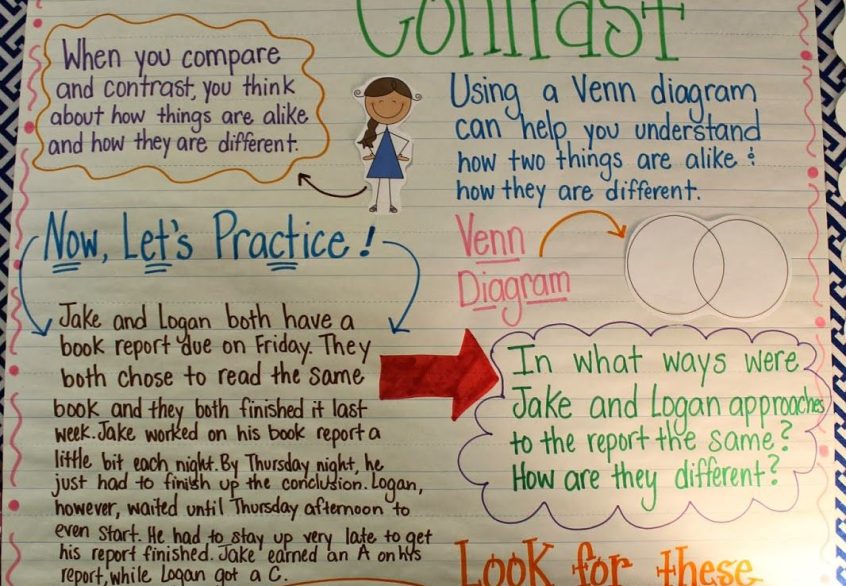 Contrast
When you compare
and contrast, you think
about how things are alike
and how they are different.
Using a Venn diagram
can help you understand
how two things are alike &
how they are different.
Venn
Diagram
Now, Let's Practice!
Jake and Logan both have a
book report due on Friday. They
both chose to read the same
book and they both finished it last
week. Jake worked on his book report a
little bit each night. By Thursday night, he
just had to finish up the conclusion. Logan,
however, waited until Thursday afternoon to
even start. He had to stay up very late to get
his report finished. Jake earned an A on his
report, while Logan got a C.
In what ways were
Jake and Logan approaches
to the report the same?
How are they different?
Look for these